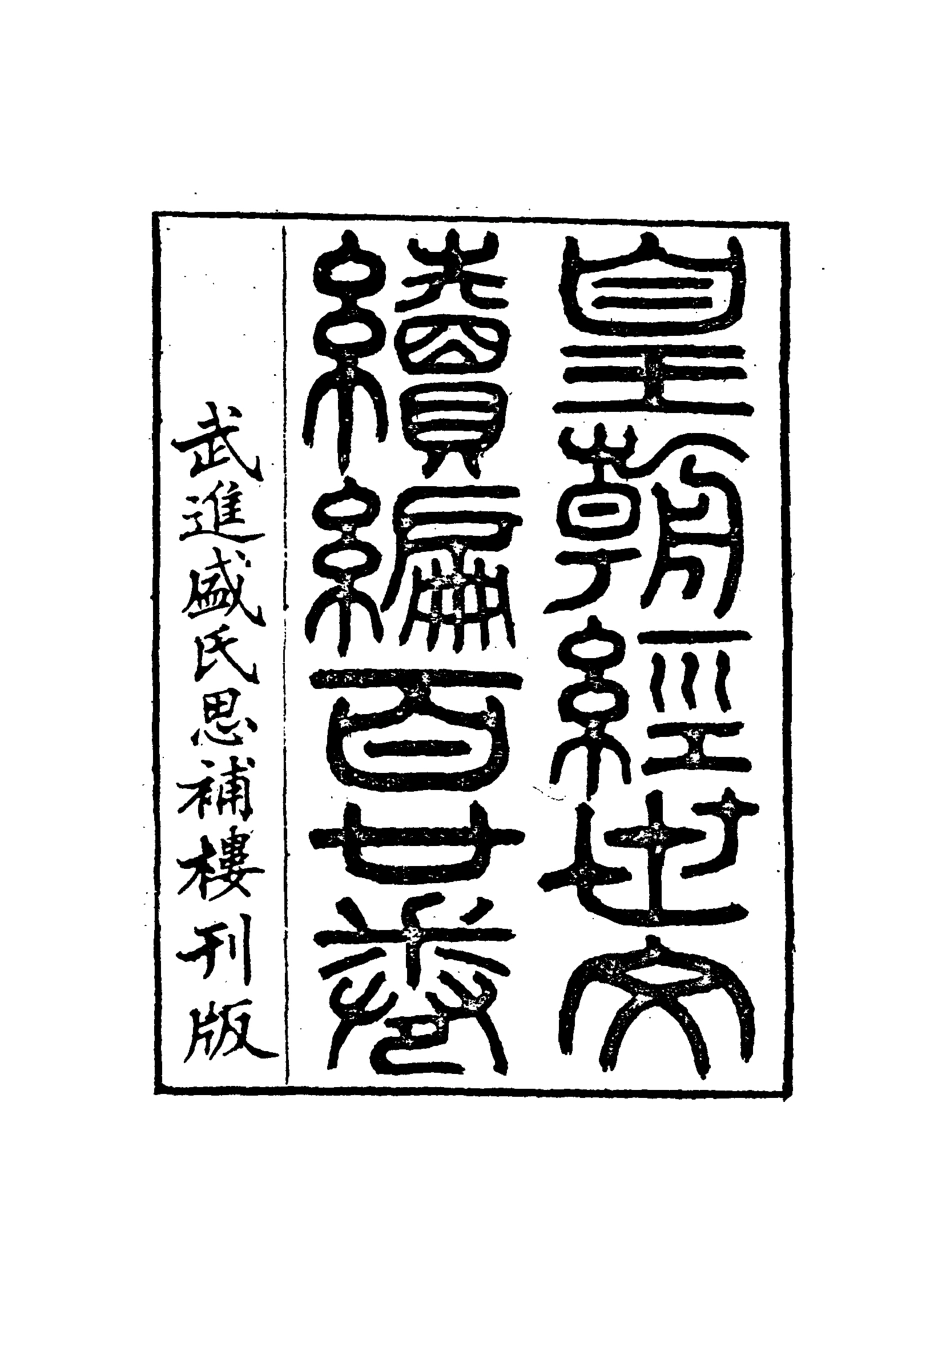 皇朝經世文
續編百廿卷
武進盛氏思補樓刊版